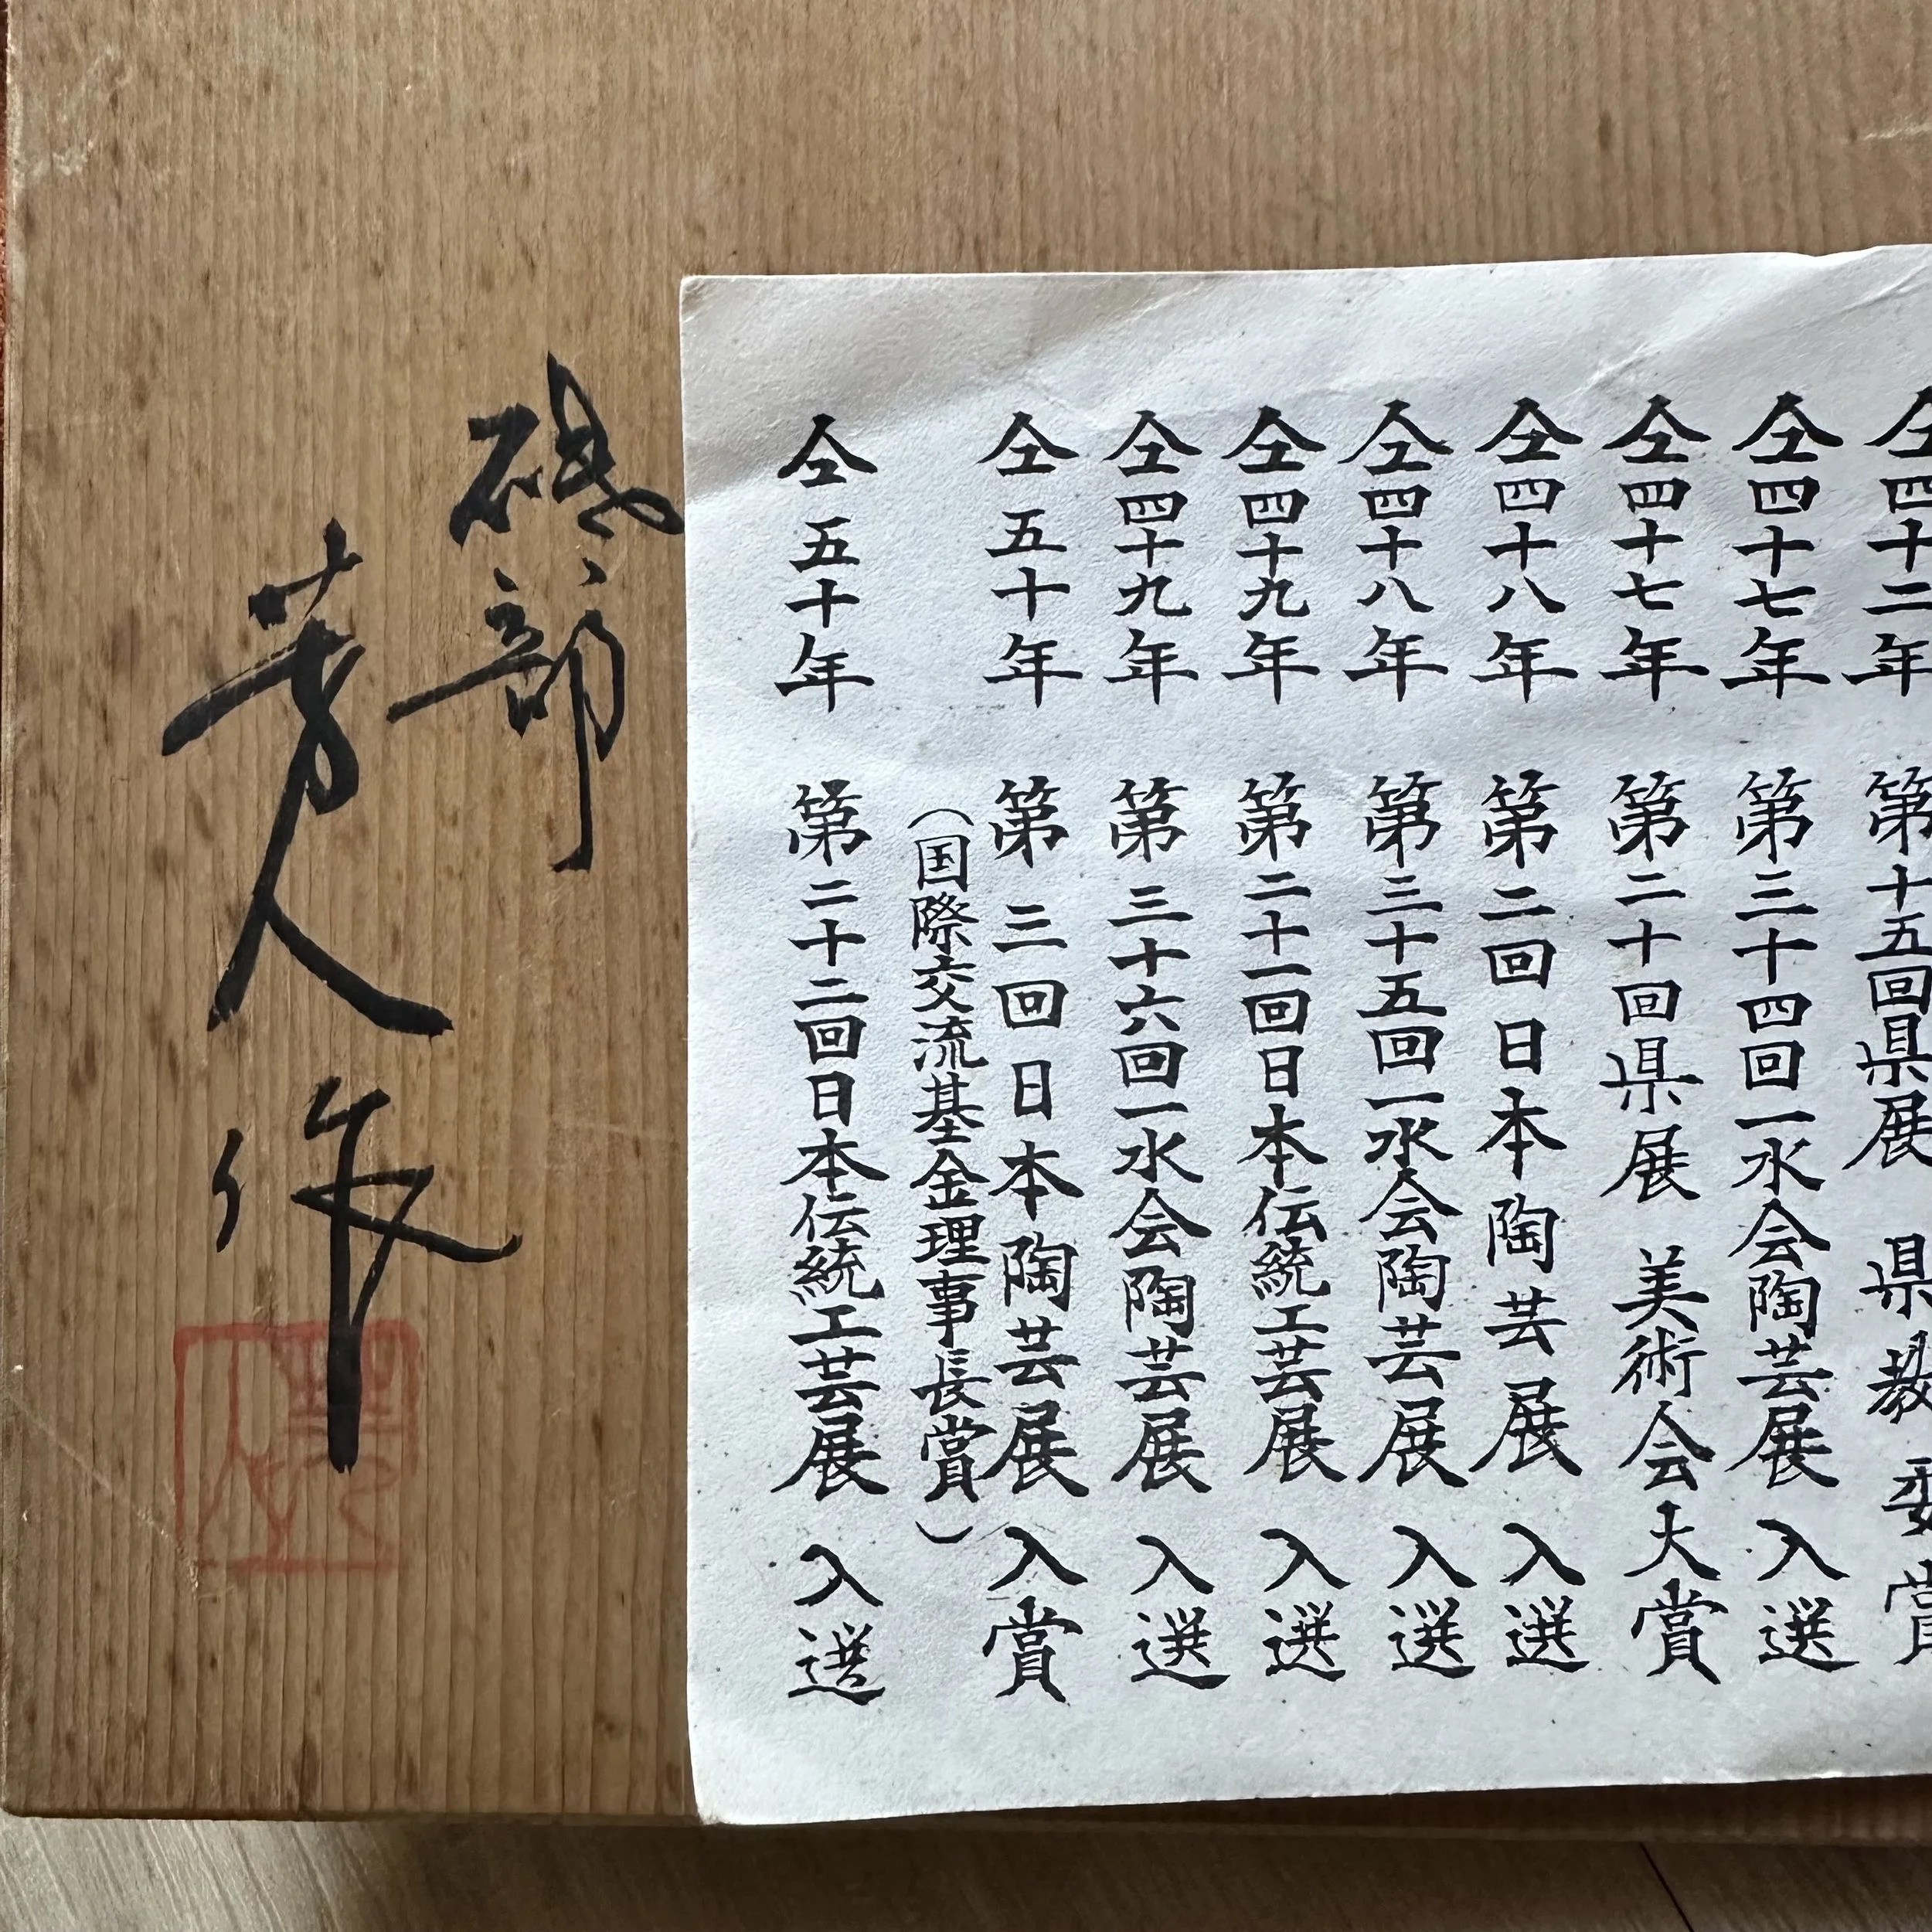 仝四十二年 第十五回県展 県教委賞
仝四十七年 第三十四回一水会陶芸展 入選
仝四十七年 第二十回県展 美術会大賞
仝四十八年 第二回日本陶芸展 入選
仝四十八年 第三十五回一水会陶芸展 入選
仝四十九年 第二十一回日本伝統工芸展 入選
仝四十九年 第三十六回一水会陶芸展 入選
仝五十年 第三回日本陶芸展 入賞
（国際交流基金理事長賞）
仝五十年 第二十二回日本伝統工芸展 入選
砥部
芳人作